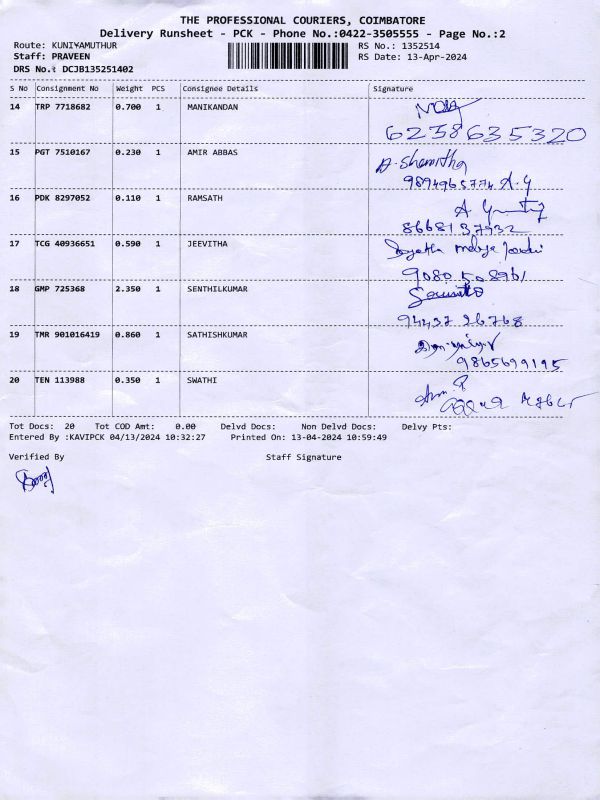 THE PROFESSIONAL COURIERS, COIMBATORE
Delivery Runsheet - PCK - Phone No.:0422-3505555 - Page No.:2
Route: KUNIYAMUTHUR
RS No.: 1352514
Staff: PRAVEEN
RS Date: 13-Apr-2024
DRS No.: DCJB135251402
S No Consignment No Weight PCS Consignee Details Signature
14 TRP 7718682 0.700 1 MANIKANDAN
6238635320
15 PGT 7510167 0.230 1 AMIR ABBAS A. Shamitha
9894965774 A.Y
16 PDK 8297052 0.110 1 RAMSATH
8668137932
17 TCG 40936651 0.590 1 JEEVITHA
9080508961
18 GMP 725368 2.350 1 SENTHILKUMAR
94437 26768
19 TMR 901016419 0.860 1 SATHISHKUMAR
9865699195
20 TEN 113988 0.350 1 SWATHI
Tot Docs: 20 Tot COD Amt: 0.00 Delvd Docs: Non Delvd Docs: Delvy Pts:
Entered By :KAVIPCK 04/13/2024 10:32:27 Printed On: 13-04-2024 10:59:49
Verified By Staff Signature